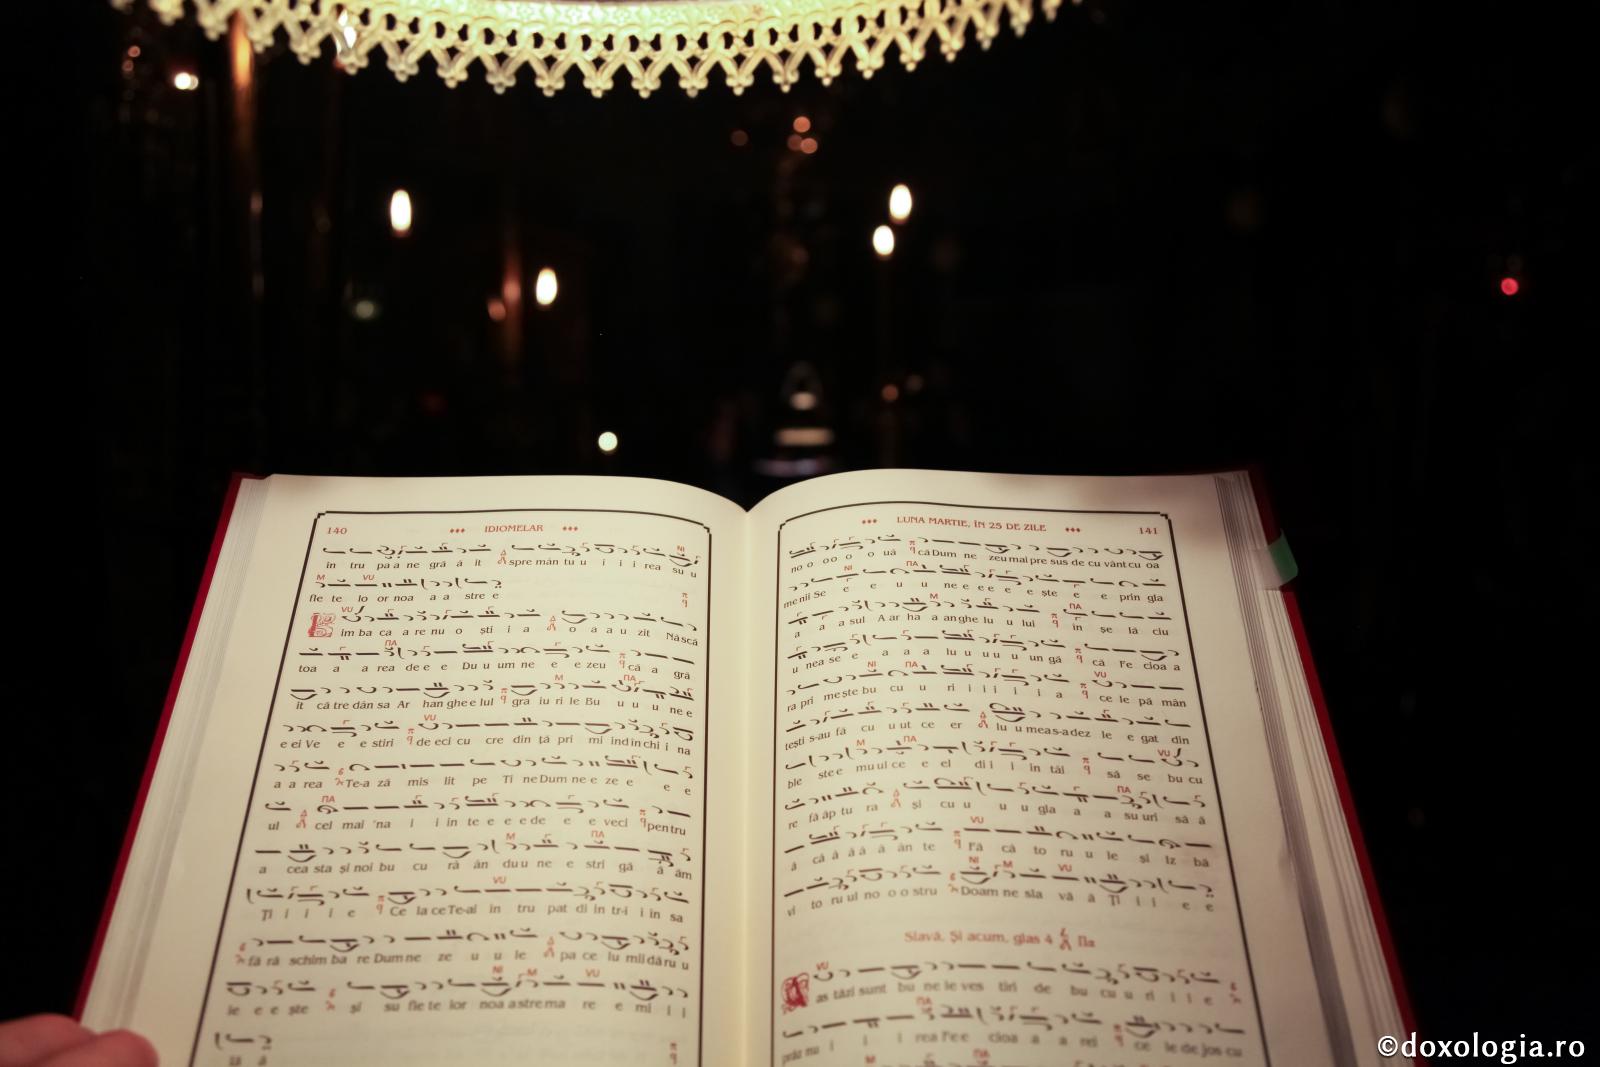 140 ♦♦♦ IDIOMELAR ♦♦♦
în tru pa a ne gră ă it spre mân tu u i i i rea su u
fle te lo or noa a a stre e
Lim ba ca a re nu o ști i a o a a u zit Năs că
toa a a rea de e e Du u um ne e e zeu că a gră
it că tre dân sa Ar han ghe e lul gra iu ri le Bu u u u ne e
e ei Ve e e stiri de eci cu cre din ță pri mi ind în chi i na
a a rea Te-a ză mis lit pe Ti ne Dum ne e ze e e e
ul cel mai 'na i i in te e e e de e e veci pen tru
a cea sta și noi bu cu ră ân du u ne e stri gă ă ăm
Ți i i i e Ce la ce Te-ai în tru pat di in tr-i i in sa
fă ră schim ba re Dum ne ze u u le pa ce lu mii dă ru u
ie e e ște și su fle te lor noa a stre ma re e mi i i
lă ă
♦♦♦ LUNA MARTIE, ÎN 25 DE ZILE ♦♦♦ 141
no o o o o o uă că Dum ne zeu mai pre sus de cu vânt cu oa
me nii Se e e u u ne e e e e ește e e prin gla
a a a sul A ar ha a an ghe lu u lui în șe lă ciu
u nea se e a a a lu u u u un gă că Fe cioa a
ra pri mește bu cu u ri i i i i i a ce le pă mân
tești s-au fă cu u ut ce er lu u mea s-a dez le e gat din
ble ste e mu ul ce e el di i i în tâi să se bu cu
re fă ăp tu ra și cu u u u gla a a su uri să ă
ă câ â â â â ân te Fă că to ru u le și Iz bă
vi to ru ul no o o stru Doam ne sla vă ă Ți i i e e
Slavă, Și acum, glas 4 Πa
As tăzi sunt bu ne le ves tiri de bu cu u ri i i e
prăz nu i i i rea Fe e cioa a a rei ce le de jos cu
©doxologia.ro